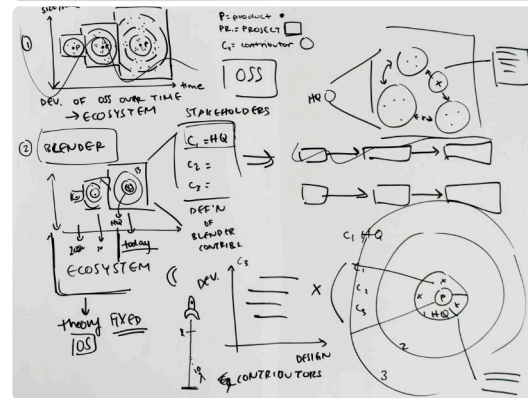 size/
①
time
DEV. OF OSS OVER TIME
→ ECOSYSTEM
P = product •
PR. = PROJECT
C₁ = contributor
OSS
STAKEHOLDERS
HQ
x
② BLENDER
C₁ = HQ
C₂ =
C₃ =
DEF'N
OF
BLENDER
CONTRIBS.
B
HQ
today
ECOSYSTEM
theory FIXED
IOS
DEV.
C₃
DESIGN
CONTRIBUTORS
X
C₁ HQ
C₁
C₂
C₃
P
HQ
x
x
x
2
3